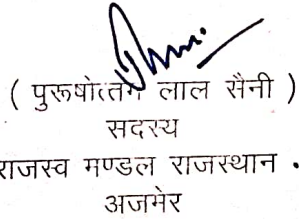 ( पुरूषोत्तम लाल सैनी )
सदस्य
राजस्व मण्डल राजस्थान .
अजमेर